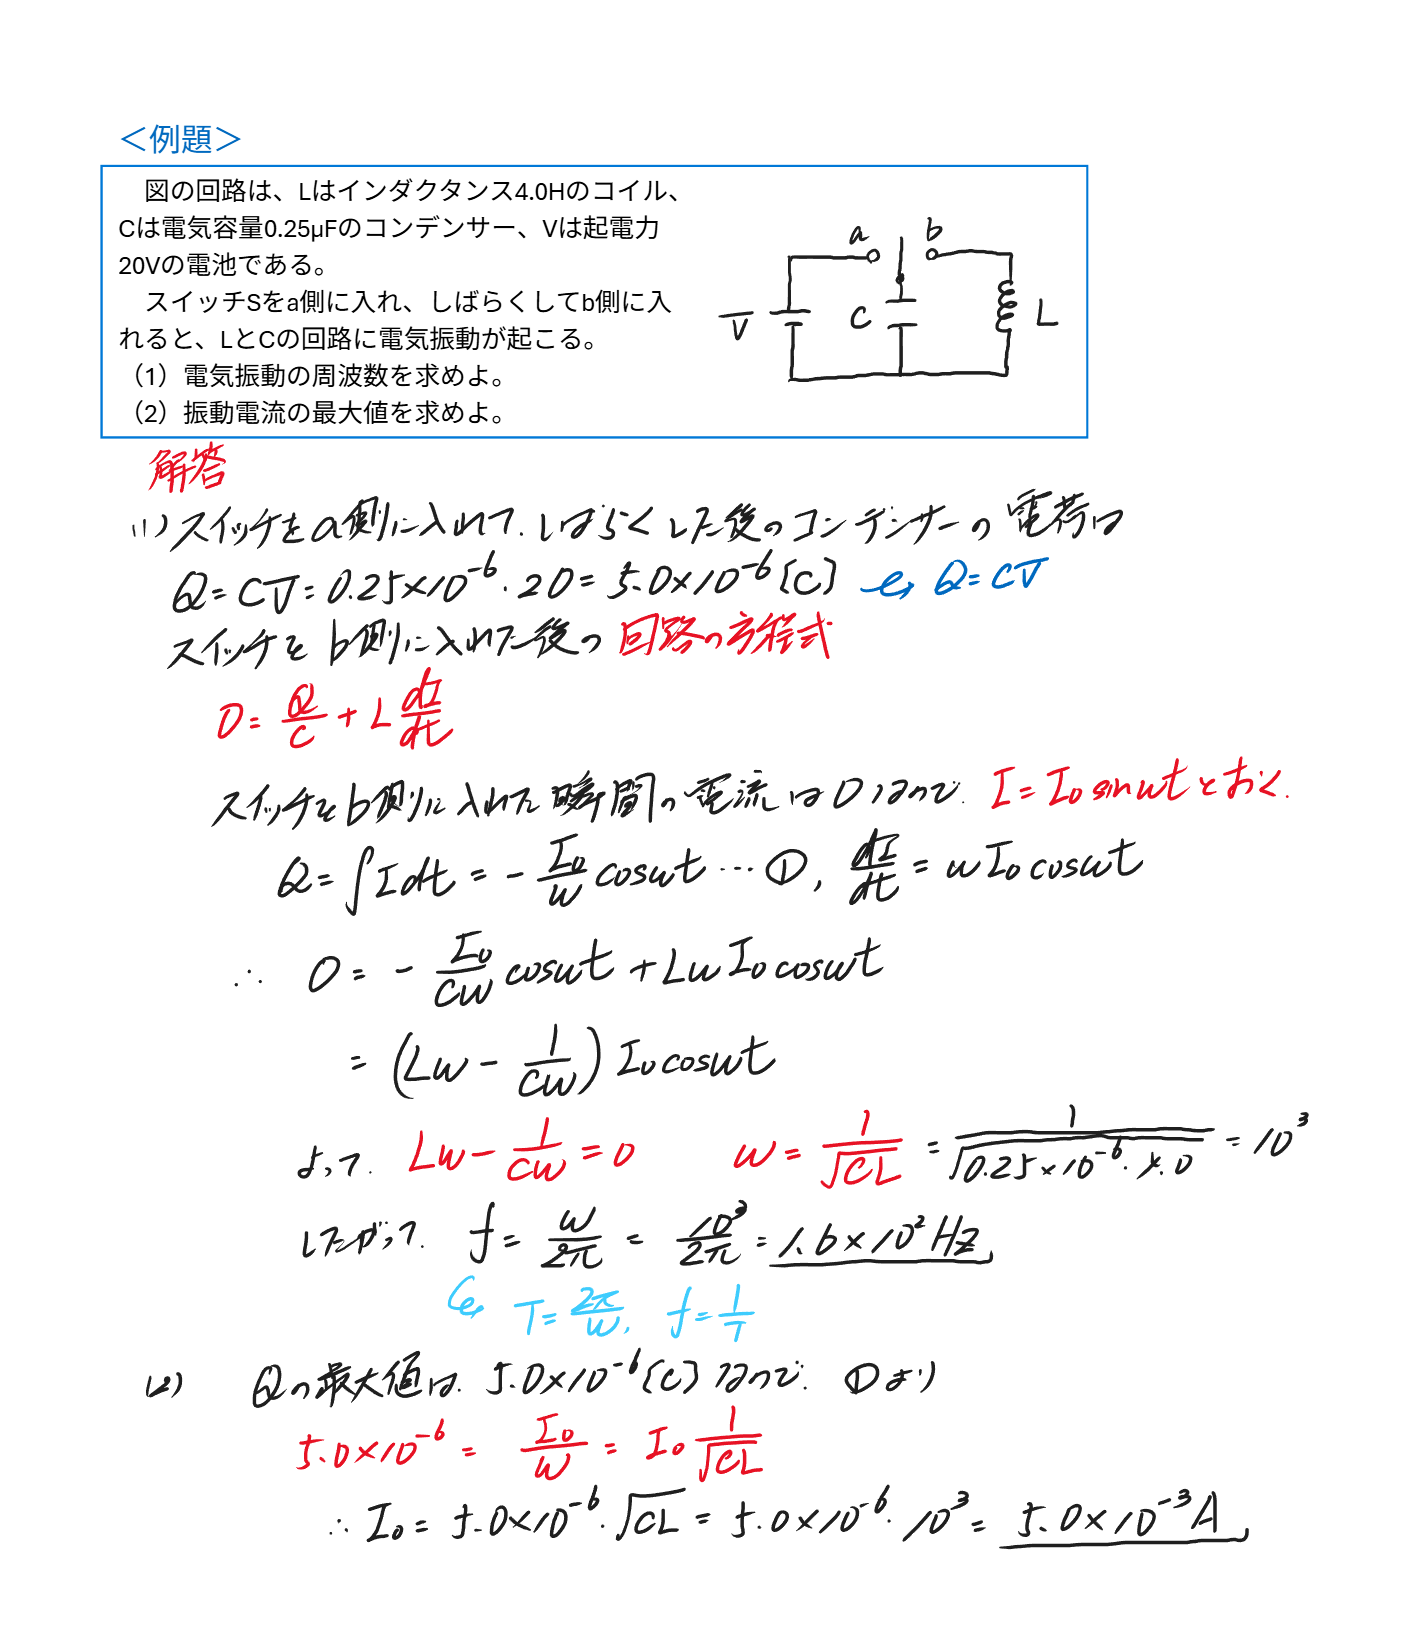 ＜例題＞
図の回路は、Lはインダクタンス4.0Hのコイル、
Cは電気容量0.25μFのコンデンサー、Vは起電力
20Vの電池である。
スイッチSをa側に入れ、しばらくしてb側に入
れると、LとCの回路に電気振動が起こる。
（1）電気振動の周波数を求めよ。
（2）振動電流の最大値を求めよ。
a b
V C L
解答
(1) スイッチをa側に入れて、しばらくした後のコンデンサーの電荷は
Q = CV = 0.25×10⁻⁶・20 = 5.0×10⁻⁶ [C] Q = CV
スイッチをb側に入れた後の回路の方程式
0 = Q/C + L dI/dt
スイッチをb側に入れた瞬間の電流は0なので、I = I₀ sinωt とおく.
Q = ∫I dt = - I₀/ω cosωt … ①, dI/dt = ωI₀ cosωt
∴ 0 = - I₀/Cω cosωt + LωI₀ cosωt
= (Lω - 1/Cω) I₀ cosωt
よって、Lω - 1/Cω = 0 ω = 1/√CL = 1/√0.25×10⁻⁶・4.0 = 10³
したがって、f = ω/2π = 10³/2π = 1.6×10² Hz
T = 2π/ω, f = 1/T
(2) Qの最大値は、5.0×10⁻⁶ [C] なので、①より
5.0×10⁻⁶ = I₀/ω = I₀ 1/√CL
∴ I₀ = 5.0×10⁻⁶・√CL = 5.0×10⁻⁶・10³ = 5.0×10⁻³ A